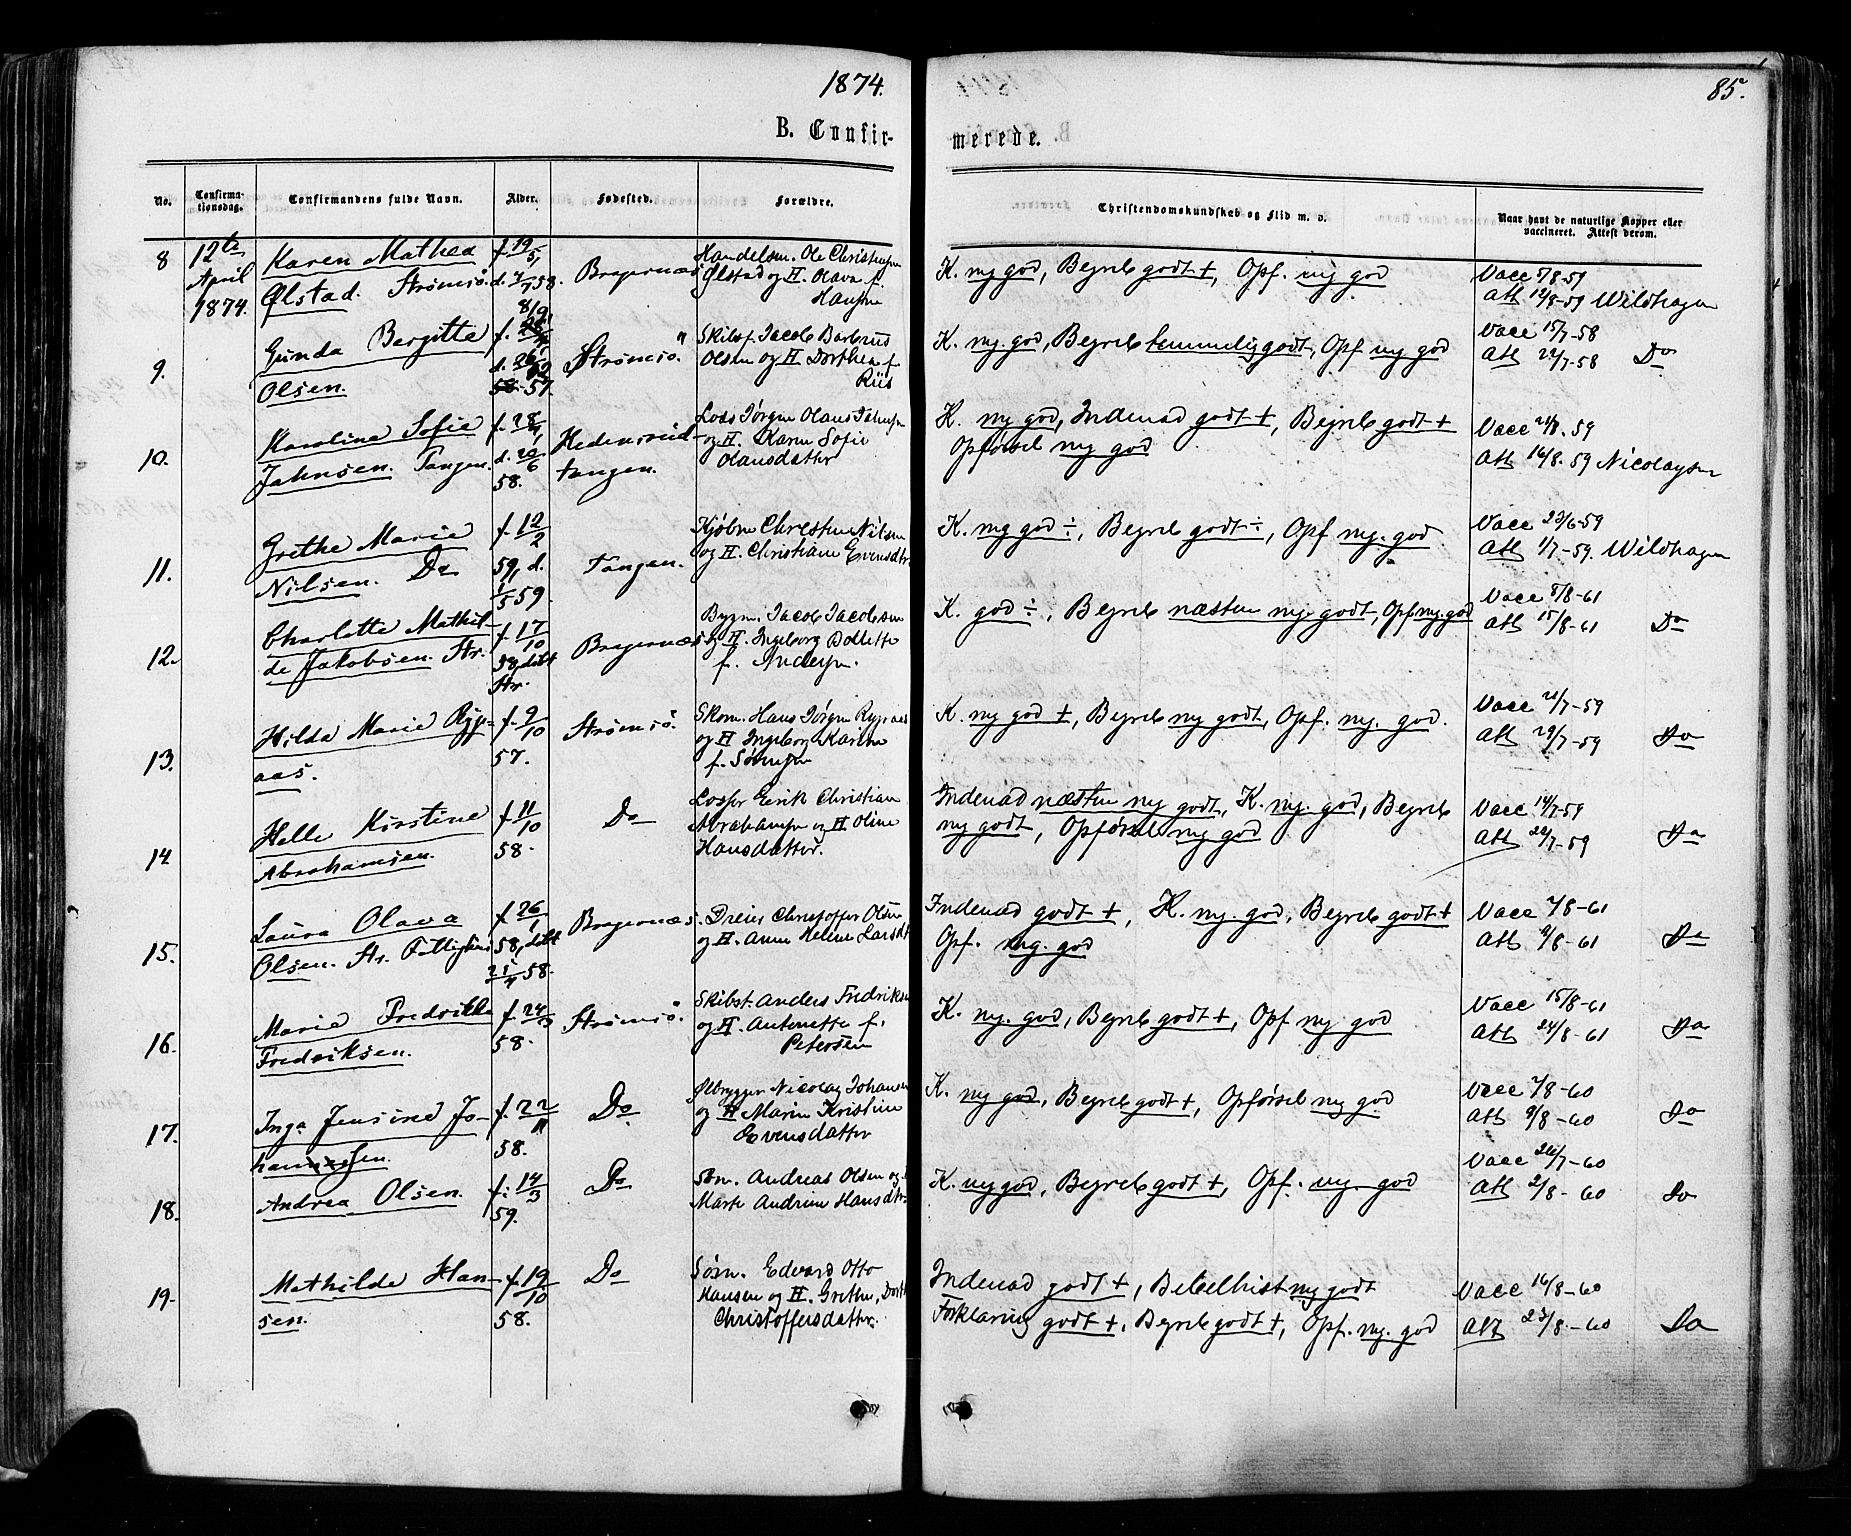 1874.
85.
B. Confir-
merede.
No.
Confirma-
tionsdag.
Confirmandens fulde Navn.
Alder.
Fødested.
Forældre.
Christendomskundskab og Flid m. v.
Naar havt de naturlige Kopper eller
vaccineret. Attest derom.
8
12te
April
1874.
Karen Mathea
Ølstad. Strømsö.
f. 19/5,
d. 58.
Bragernæs
Handelsm. Ole Christensen
Ølstad og H. Olava f.
Hansen
K. mg god, Begreb godt +, Opf. mg god
Vacc 5/8-59
Att 12/8-59 Wildhagen
9.
Gunda Bergitte
Olsen.
57.
Strømsö.
Skibsf. Jacob Barbrus
Olsen og H. Dorthea f.
Riis
K. mg. god, Begreb temmelig godt, Opf mg god
Vacc 15/7-58
Att 22/7-58 Do
10.
Karoline Sofie
Jahnsen. Tangen.
f. 28/4,
d. 20/6
58.
Hedensrud-
tangen.
Lods Jørgen Olaus Jahnsen
og H. Karen Sofie
Olausdatter
K. mg god, Indenad godt +, Begreb godt +
Opførsel mg god
Vacc 24/8-59
Att 16/8-59 Nicolaysen
11.
Grethe Marie
Nilsen. Do
f. 12/2
59, d.
1/5 59
Tangen.
Kjøbm Christen Nilsen
og H. Christiane Evensdtr.
K. mg god ÷, Begreb godt ÷, Opf mg. god
Vacc 23/6-59
Att 1/7-59. Wildhagen
12.
Charlotte Mathil-
de Jakobsen. Str.
f. 17/10
58, döbt
Str.
Bragernæs
Bygm. Jacob Jacobsen
og H. Ingeborg Dollette
f. Andersen.
K. god ÷, Begreb næsten mg godt, Opf mg. god
Vacc 8/8-61
Att 15/8-61 Do
13.
Hilda Marie Ryg-
aas.
f. 9/10
57.
Strømsö.
Skom. Hans Jørgen Rygaas
og H Ingeborg Karine
f. Sørensen
K. mg god +, Begreb mg godt, Opf. mg. god.
Vacc 21/7-59
Att 29/7-59 Do
14
Helle Kirstine
Abrahamsen.
f. 11/10
58.
Do
Erik Christian
Abrahamsen og H Oline
Hansdatter.
Indenad næsten mg godt, K. mg. god, Begreb
mg godt, Opførsel mg god
Vacc 14/7-59
Att 22/7-59 Do
15.
Laura Olava
Olsen. Str.
58, döbt
58.
Bragernæs.
Dreier Christoffer Olsen
og H. Anne Helene Larsdt
Indenad godt +, K. mg. god, Begreb godt +
Opf. mg. god
Vacc 2/8-61
Att 9/8-61 Do
16.
Marie Fredrikke
Fredriksen.
f. 24/3
58.
Strømsö.
Skibst. Anders Fredriksen
og H. Antonette f.
Petersen
K. mg. god, Begreb godt +, Opf mg god
Vacc 15/8-61
Att 24/8-61 Do
17.
Inga Jensine Jo-
hannesen.
f. 22/11
58.
Do
Ølbrygger Nicolay Johansen
og H Maren Kristine
Evensdatter
K. mg god, Begreb godt +, Opførsel mg god
Vacc 2/8-60
Att 9/8-60 Do
18.
Andrea Olsen.
f. 14/3
59.
Do
Søm. Andreas Olsen og
Marte Andrine Hansdtr
K. mg god, Begreb godt +, Opf. mg. god
Vacc 26/7-60
Att 2/8-60 Do
19.
Mathilde Han-
sen.
f. 19/10
58.
Do
Søm. Edvard Otto
Hansen og H. Grethe, Dorth
Christoffersdatter.
Indenad godt +, Bibelhist mg godt
Forklaring godt +, Begreb godt +, Opf. mg. god
Vacc 16/8-60
Att 23/8-60 Do